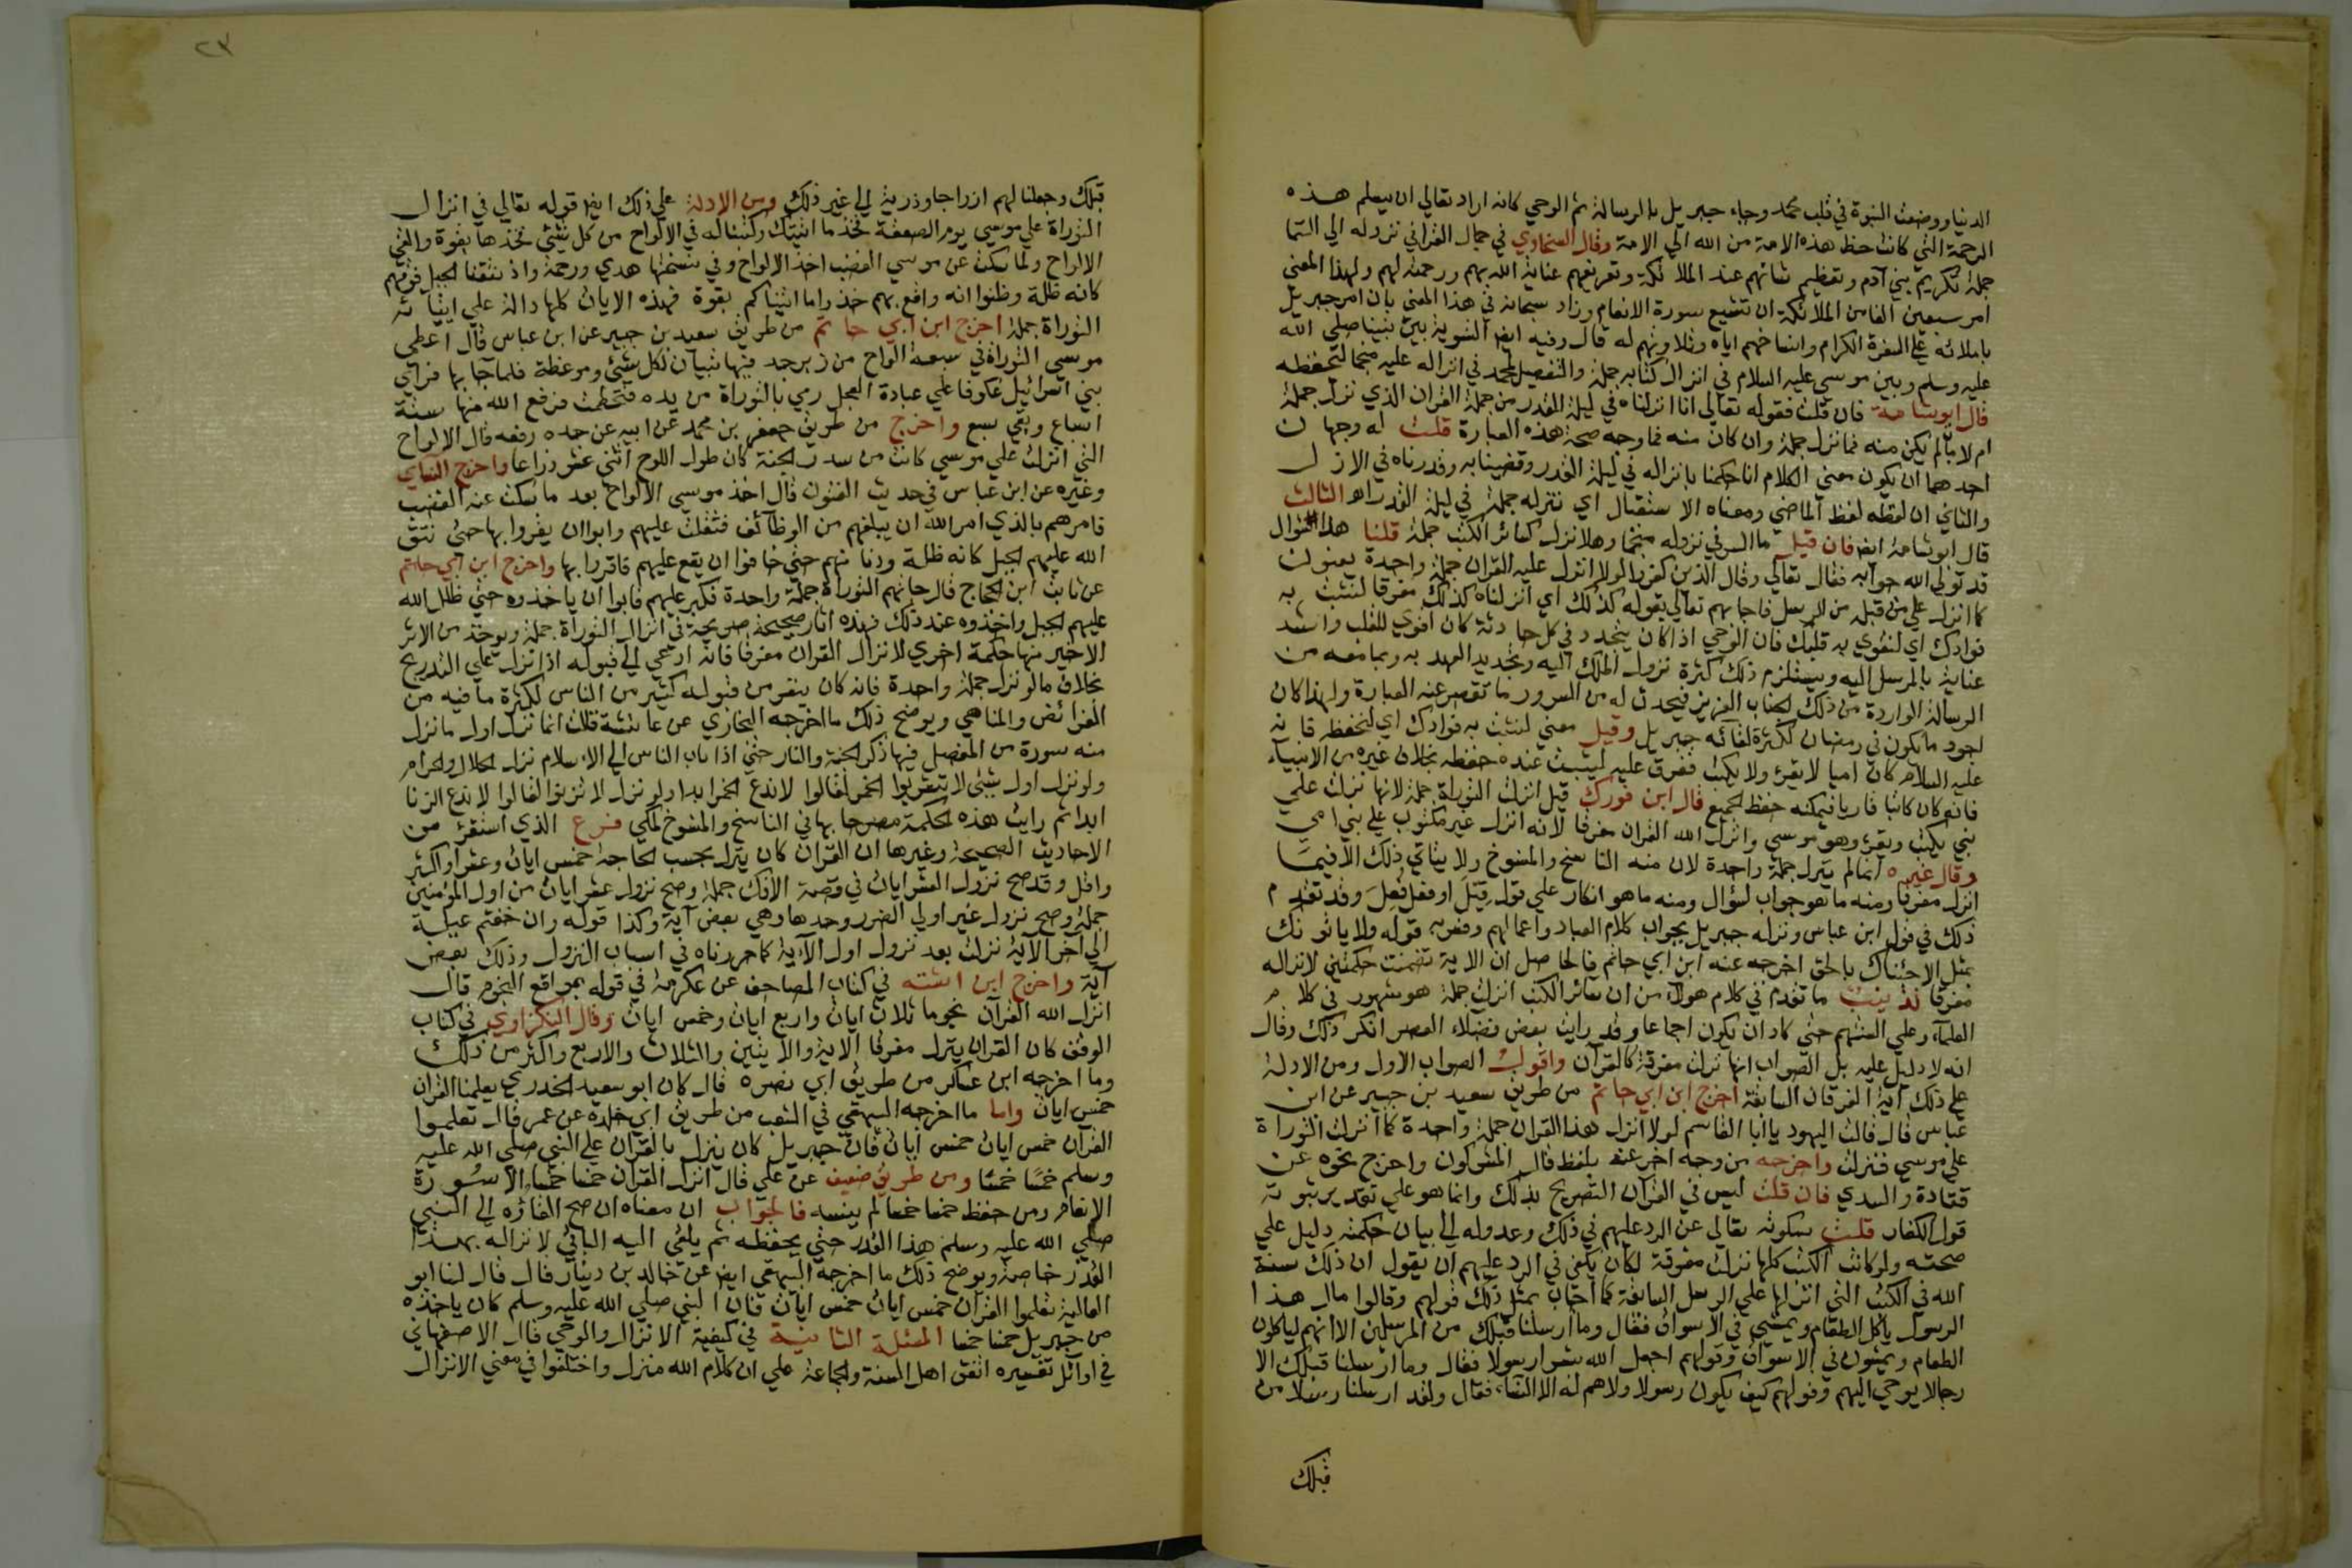 الدنيا ووضعت النبوة في قلب محمد وجاء جبريل بالرسالة ثم الوحي كانه اراد تعالي ان يسلم هذه
الرحمة التي كانت حظ هذه الامة من الله الي الامة وقال السخاوي في جمال القرا في نزوله الي السما
جملة تكريم بني آدم وتعظيم شانهم عند الملائكة وتعريفهم عناية الله بهم ورحمته لهم ولهذا المعني
امر سبعين الفا من الملائكة ان تشيع سورة الانعام وزاد سبحانه في هذا المعني بان امر جبريل
باملائه علي السفرة الكرام وانساخهم اياه وتلاوتهم له قال وفيه ايضا التسوية بين نبينا صلي الله
عليه وسلم وبين موسي عليه السلام في انزال كتابه جملة والتفضيل لمحمد في انزاله عليه منجما ليحفظه
قال ابو شامة فان قلت فقوله تعالي انا انزلناه في ليلة القدر من جملة القران الذي نزل جملة
ام لا فالم يكن منه فما نزل جملة وان كان منه فما وجه صحة هذه العبارة قلت له وجهان
احدهما ان يكون معني الكلام انا حكمنا بانزاله في ليلة القدر وقضينا به وقدرناه في الازل
والثاني ان لفظه لفظ الماضي ومعناه الاستقبال اي ننزله جملة في ليلة القدر اهـ الثالث
قال ابو شامة ايضا فان قيل ما السر في نزوله منجما وهلا نزل كسائر الكتب جملة قلنا هذا سوال
قد تولي الله جوابه فقال تعالي وقال الذين كفروا لولا انزل عليه القران جملة واحدة يعنون
كما انزل علي من قبله من الرسل فاجابهم تعالي بقوله كذلك اي انزلناه كذلك مفرقا لنثبت به
فوادك اي لنقوي به قلبك فان الوحي اذا كان يتجدد في كل حادثة كان اقوي للقلب واشد
عناية بالمرسل اليه ويستلزم ذلك كثرة نزول الملك اليه وتجديد العهد به وبما معه من
الرسالة الواردة من ذلك الجناب العزيز فيحدث له من السرور ما تقصر عنه العبارة ولهذا كان
اجود ما يكون في رمضان لكثرة لقائه جبريل وقيل معني لنثبت به فوادك اي لنحفظه فانه
عليه السلام كان اميا لا يقرئ ولا يكتب ففرق عليه ليثبت عنده حفظه بخلاف غيره من الانبياء
فانه كان كاتبا قاريا فيمكنه حفظ الجميع قال ابن فورك قيل انزلت التوراة جملة لانها نزلت علي
نبي يكتب ويقرئ وهو موسي وانزل الله القران مفرقا لانه انزل غير مكتوب علي نبي امي
وقال غيره انما لم ينزل جملة واحدة لان منه الناسخ والمنسوخ ولا يتاتي ذلك الا فيما
انزل مفرقا ومنه ما هو جواب لسؤال ومنه ما هو انكار علي قول قيل او فعل فعل وقد تقدم
ذلك في قول ابن عباس ونزله جبريل بجواب كلام العباد واعمالهم وفسر به قوله ولا ياتونك
بمثل الا جئناك بالحق اخرجه عنه ابن ابي حاتم فالحاصل ان الاية تضمنت حكمتين لانزاله
مفرقا تذنيب ما تقدم في كلام هولاء من ان سائر الكتب انزلت جملة هو مشهور في كلام
العلماء وعلي السنتهم حتي كاد ان يكون اجماعا وقد رايت بعض فضلاء العصر انكر ذلك وقال
انه لا دليل عليه بل الصواب انها نزلت مفرقة كالقرآن واقول الصواب الاول ومن الادلة
علي ذلك آية الفرقان السابقة اخرج ابن ابي حاتم من طريق سعيد بن جبير عن ابن
عباس قال قالت اليهود يا ابا القاسم لولا انزل هذا القران جملة واحدة كما انزلت التوراة
علي موسي فنزلت واخرجه من وجه آخر عنه بلفظ قال المشركون واخرج نحوه عن
قتادة والسدي فان قلت ليس في القرآن التصريح بذلك وانما هو علي تقدير ثبوته
قول الكفار قلت سكوته تعالي عن الرد عليهم في ذلك وعدوله الي بيان حكمته دليل علي
صحته ولو كانت الكتب كلها نزلت مفرقة لكان يكفي في الرد عليهم ان يقول ان ذلك سنة
الله في الكتب التي انزلها علي الرسل السابقة كما اجاب بمثل ذلك قولهم وقالوا مال هذا
الرسول ياكل الطعام ويمشي في الاسواق فقال وما ارسلنا قبلك من المرسلين الا انهم لياكلون
الطعام ويمشون في الاسواق وقولهم ابعث الله بشرا رسولا فقال وما ارسلنا قبلك الا
رجالا يوحي اليهم وقولهم كيف يكون رسولا ولا هم له الا النساء فقال ولقد ارسلنا رسلا من
قبلك
٢٣
قبلك وجعلنا لهم ازواجا وذرية الي غير ذلك ومن الادلة علي ذلك ايضا قوله تعالي في انزال
التوراة علي موسي يوم الصعقة فخذ ما اتيتك وكتبنا له في الالواح من كل شيئ فخذها بقوة والقي
الالواح ولما سكت عن موسي الغضب اخذ الالواح وفي نسختها هدي ورحمة واذ نتقنا الجبل فوقهم
كانه ظلة وظنوا انه واقع بهم خذوا ما اتيناكم بقوة فهذه الايات كلها دالة علي ايتيانه
التوراة جملة اخرج ابن ابي حاتم من طريق سعيد بن جبير عن ابن عباس قال اعطي
موسي التوراة في سبعة الواح من زبرجد فيها تبيان لكل شيئ وموعظة فلما جا بها فراي
بني اسرائيل عكوفا علي عبادة العجل رمي بالتوراة من يده فتحطمت فرفع الله منها ستة
اسباع وبقي سبع واخرج من طريق جعفر بن محمد عن ابيه عن جده رفعه قال الالواح
التي انزلت علي موسي كانت من سدر الجنة كان طول اللوح اثني عشر ذراعا واخرج النساي
وغيره عن ابن عباس في حديث الفتون قال اخذ موسي الالواح بعد ما سكت عنه الغضب
فامرهم بالذي امر الله ان يبلغهم من الوظائف فثقلت عليهم وابوا ان يقروا بها حتي نتق
الله عليهم الجبل كانه ظلة ودنا منهم حتي خافوا ان يقع عليهم فاقروا بها واخرج ابن ابي حاتم
عن ثابت ابن الحجاج قال جاتهم التوراة جملة واحدة فكبر عليهم فابوا ان ياخذوه حتي ظلل الله
عليهم الجبل واخذوه عند ذلك فهذه آثار صحيحة صريحة في انزال التوراة جملة ويوخذ من الاثر
الاخير منها حكمة اخري لانزال القران مفرقا فانه ادعي الي قبوله اذا نزل علي التدريج
بخلاف ما لو نزل جملة واحدة فانه كان ينفر من قبوله كثير من الناس لكثرة ما فيه من
الفرائض والمناهي ويوضح ذلك ما اخرجه البخاري عن عائشة قالت انما نزل اول ما نزل
منه سورة من المفصل فيها ذكر الجنة والنار حتي اذا ثاب الناس الي الاسلام نزل الحلال والحرام
ولو نزل اول شيئ لا تشربوا الخمر لقالوا لا ندع الخمر ابدا ولو نزل لا تزنوا لقالوا لا ندع الزنا
ابدا ثم رايت هذه الحكمة مصرحا بها في الناسخ والمنسوخ لمكي فرع الذي استقرئ من
الاحاديث الصحيحة وغيرها ان القرآن كان ينزل بحسب الحاجة خمس ايات وعشر او اكثر
واقل وقد صح نزول العشر ايات في قصة الافك جملة وصح نزول عشر ايات من اول المؤمنين
جملة وصح نزول غير اولي الضرر وحدها وهي بعض آية وكذا قوله وان خفتم عيلة
الي آخر الآية نزلت بعد نزول اول الآية كما حررناه في اسباب النزول وذلك بعض
آية واخرج ابن اشته في كتاب المصاحف عن عكرمة في قوله بمواقع النجوم قال
انزل الله القرآن نجوما ثلاث ايات واربع ايات وخمس ايات وقال النكزاوي في كتاب
الوقف كان القران ينزل مفرقا الاية والايتين والثلاث والاربع واكثر من ذلك
وما اخرجه ابن عساكر من طريق ابي نضره قال كان ابو سعيد الخدري يعلمنا القران
خمس ايات واما ما اخرجه البيهقي في الشعب من طريق ابي خلده عن عمر قال تعلموا
القرآن خمس ايات خمس ايات فان جبريل كان ينزل بالقران علي النبي صلي الله عليه
وسلم خمسا خمسا ومن طريق ضعيف عن علي قال انزل القران خمسا خمسا الا سورة
الانعام ومن حفظ خمسا خمسا لم ينسه فالجواب ان معناه ان صح القاؤه الي النبي
صلي الله عليه وسلم هذا القدر حتي يحفظه ثم يلقي اليه الباقي لا نزاله بهذا
القدر خاصة ويوضح ذلك ما اخرجه البيهقي ايضا عن خالد بن دينار قال قال لنا ابو
العالية تعلموا القرآن خمس ايات خمس ايات فان النبي صلي الله عليه وسلم كان ياخذه
من جبريل خمسا خمسا المسئلة الثانية في كيفية الانزال والوحي قال الاصفهاني
في اوائل تفسيره اتفق اهل السنة والجماعة علي ان كلام الله منزل واختلفوا في معني الانزال